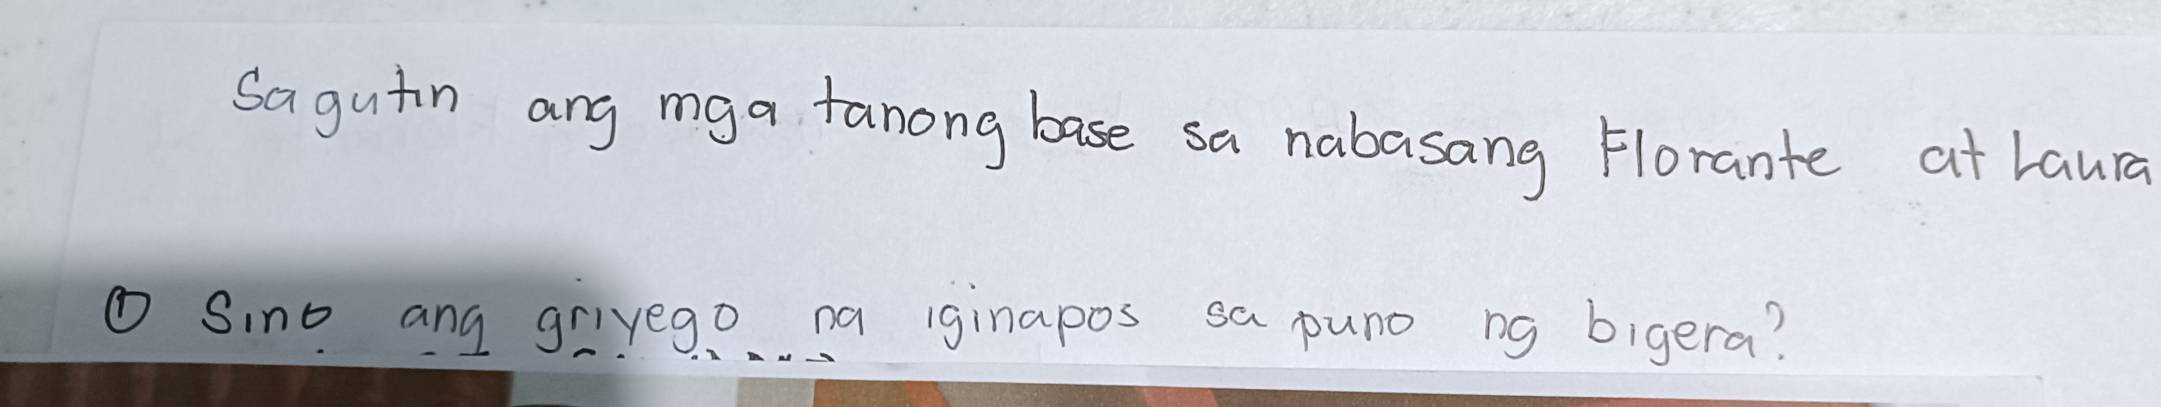 Sagutin ang mga tanong base sa nabasang Florante at Laura
① Sino ang griyego na iginapos sa puno ng bigera?